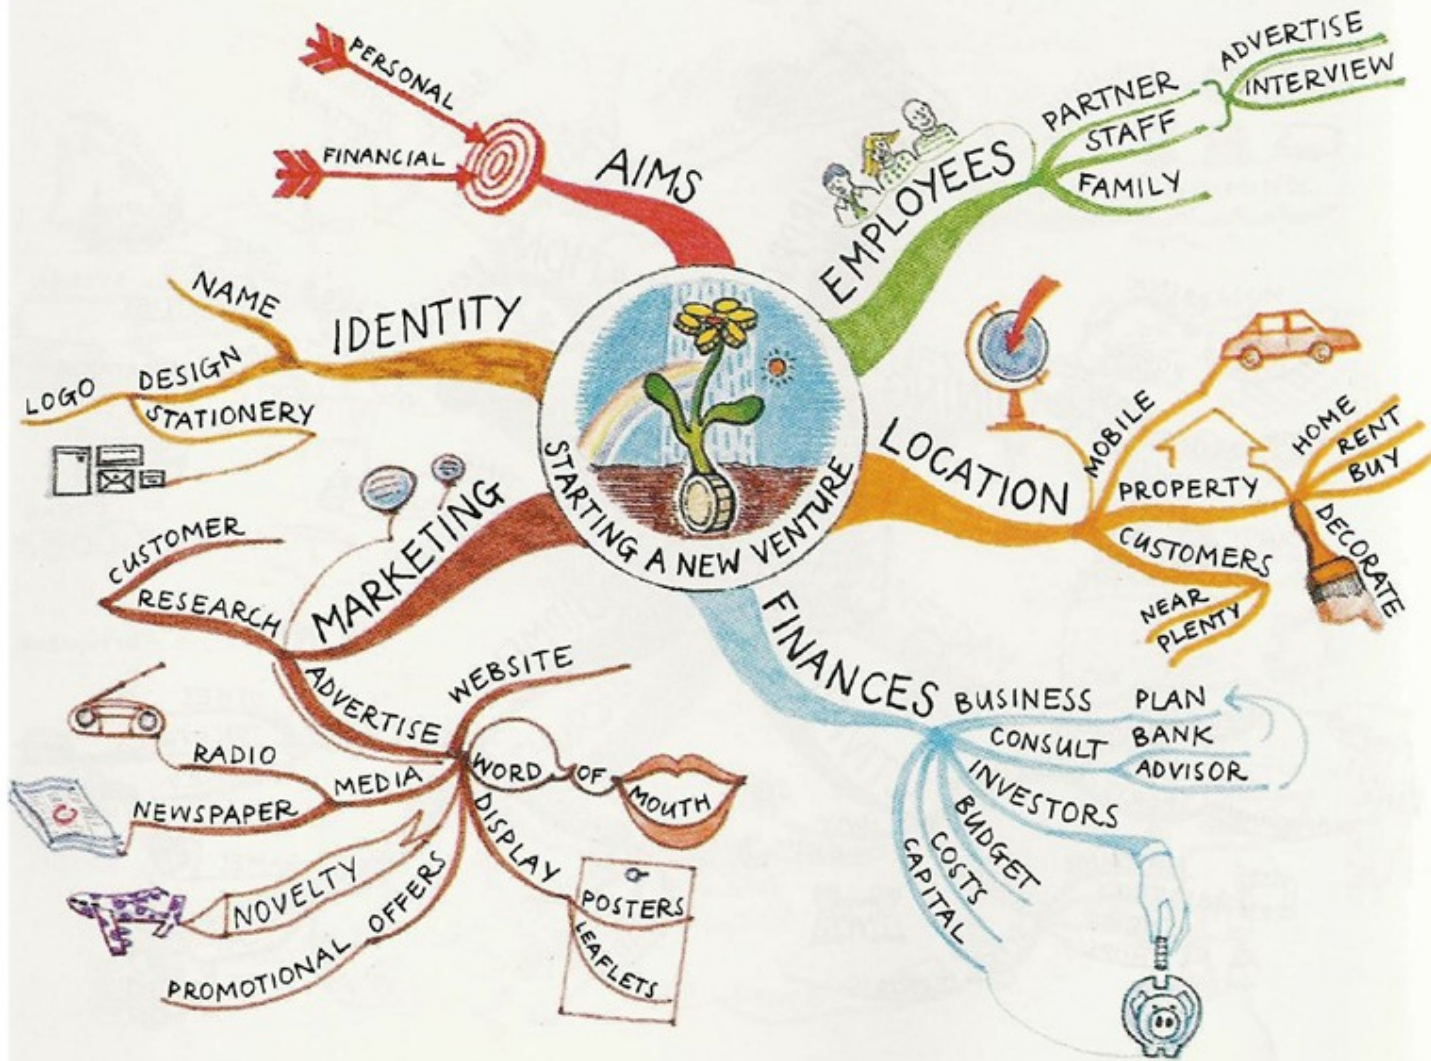 STARTING A NEW VENTURE
AIMS
PERSONAL
FINANCIAL
EMPLOYEES
PARTNER
STAFF
ADVERTISE
INTERVIEW
FAMILY
LOCATION
MOBILE
PROPERTY
HOME
RENT
BUY
DECORATE
CUSTOMERS
NEAR
PLENTY
FINANCES
BUSINESS PLAN
CONSULT
BANK
ADVISOR
INVESTORS
BUDGET
COSTS
CAPITAL
MARKETING
RESEARCH
CUSTOMER
ADVERTISE
WEBSITE
WORD OF MOUTH
DISPLAY
POSTERS
LEAFLETS
MEDIA
RADIO
NEWSPAPER
NOVELTY
PROMOTIONAL OFFERS
IDENTITY
NAME
DESIGN
LOGO
STATIONERY